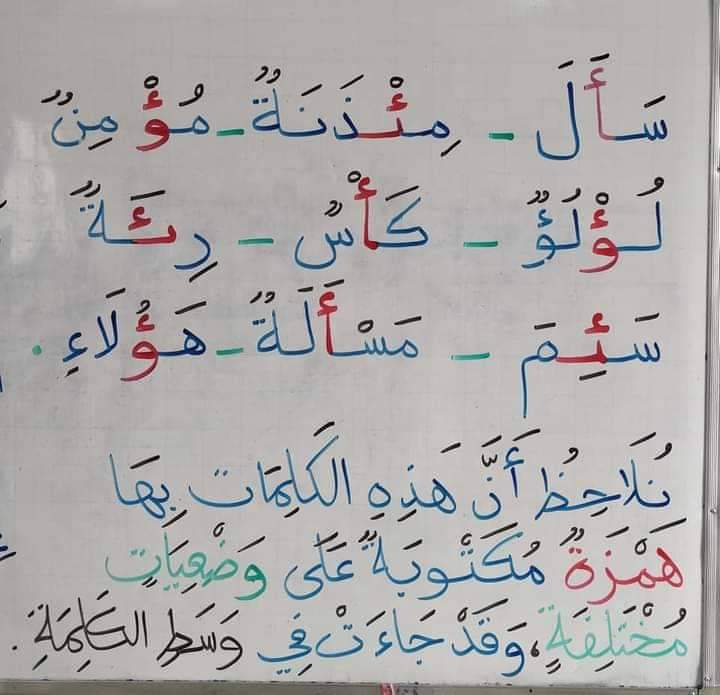 سَأَلَ - مِئْذَنَةٌ - مُؤْمِنٌ
لُؤْلُؤٌ - كَأْسٌ - رِئَةٌ
سَئِمَ - مَسْأَلَةٌ - هَؤُلَاءِ.
نُلَاحِظُ أَنَّ هَذِهِ الكَلِمَات بِهَا
هَمْزَةٌ مُكَتْوبَةٌ عَلَى وَضْعِيَاتٍ
مُخْتَلِفَةٍ، وَقَدْ جَاءَتْ فِي وَسَطِ الكَلِمَةِ.